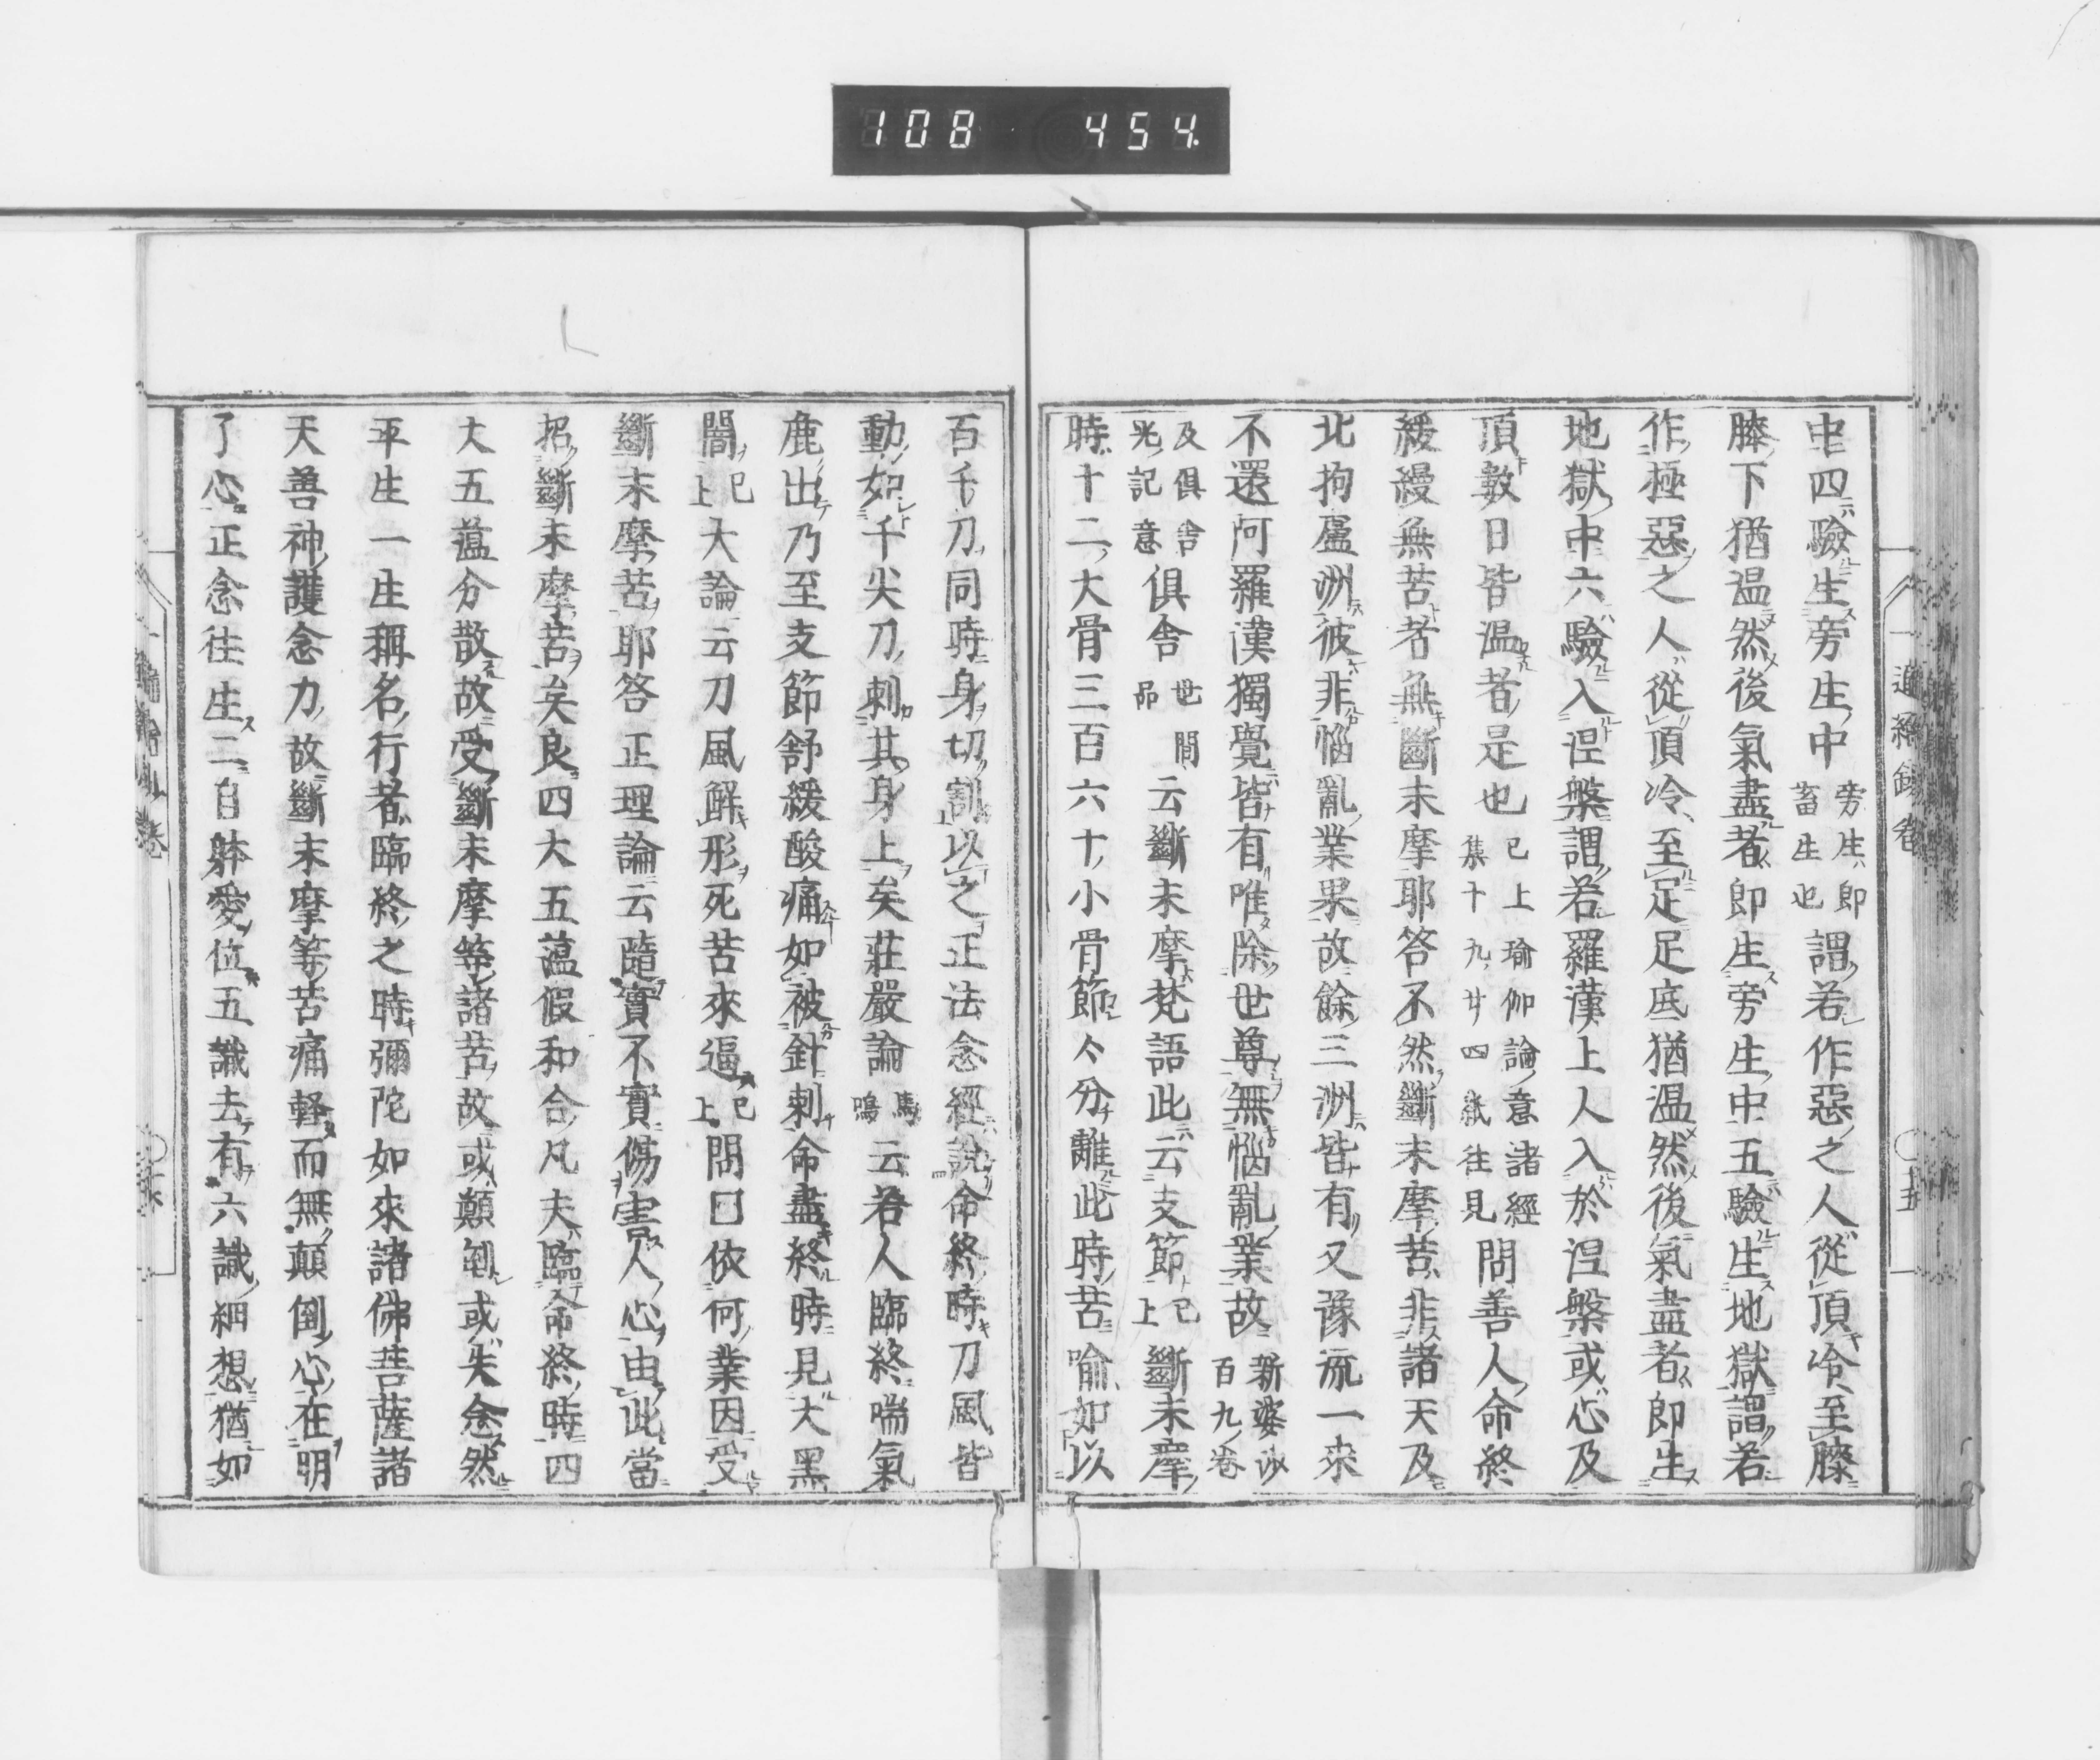 108 454.
中四驗生旁生中旁生即畜生也謂若作惡之人從頂冷至膝
膝下猶温然後氣盡者即生旁生中五驗生地獄謂若
作極惡之人從頂冷至足足底猶温然後氣盡者即生
地獄中六驗入涅槃謂若羅漢上人入於涅槃或心及
頂數日皆温者是也已上瑜伽論意諸經集十九廿四紙往見問善人命終
緩縵無苦者無斷末摩耶答不然斷末摩苦非諸天及
北拘盧洲彼非惱亂業果故餘三洲皆有又豫流一來
不還阿羅漢獨覺皆有唯除世尊無惱亂業故新婆沙百九卷
及俱舍光記意俱舍世間品云斷末摩梵語此云支節已上斷末摩
時十二大骨三百六十小骨節今分離此時苦喻如以
百千刀同時身切割以之正法念經說命終時刀風皆
動如千尖刀刺其身上矣莊嚴論馬鳴云若人臨終喘氣
麁出乃至支節舒緩酸痛如被針刺命盡終時見大黑
闇已上大論云刀風解形死苦來逼已上問曰依何業因受
斷末摩苦耶答正理論云隨實不實傷害人心由此當
招斷末摩苦矣良四大五蘊假和合凡夫臨命終時四
大五蘊分散故受斷末摩等諸苦故或顛倒或失念然
平生一生稱名行者臨終之時彌陀如來諸佛菩薩諸
天善神護念力故斷末摩等苦痛軽而無顛倒心在明
了心正念往生二自躰愛位五識去有六識細想猶如